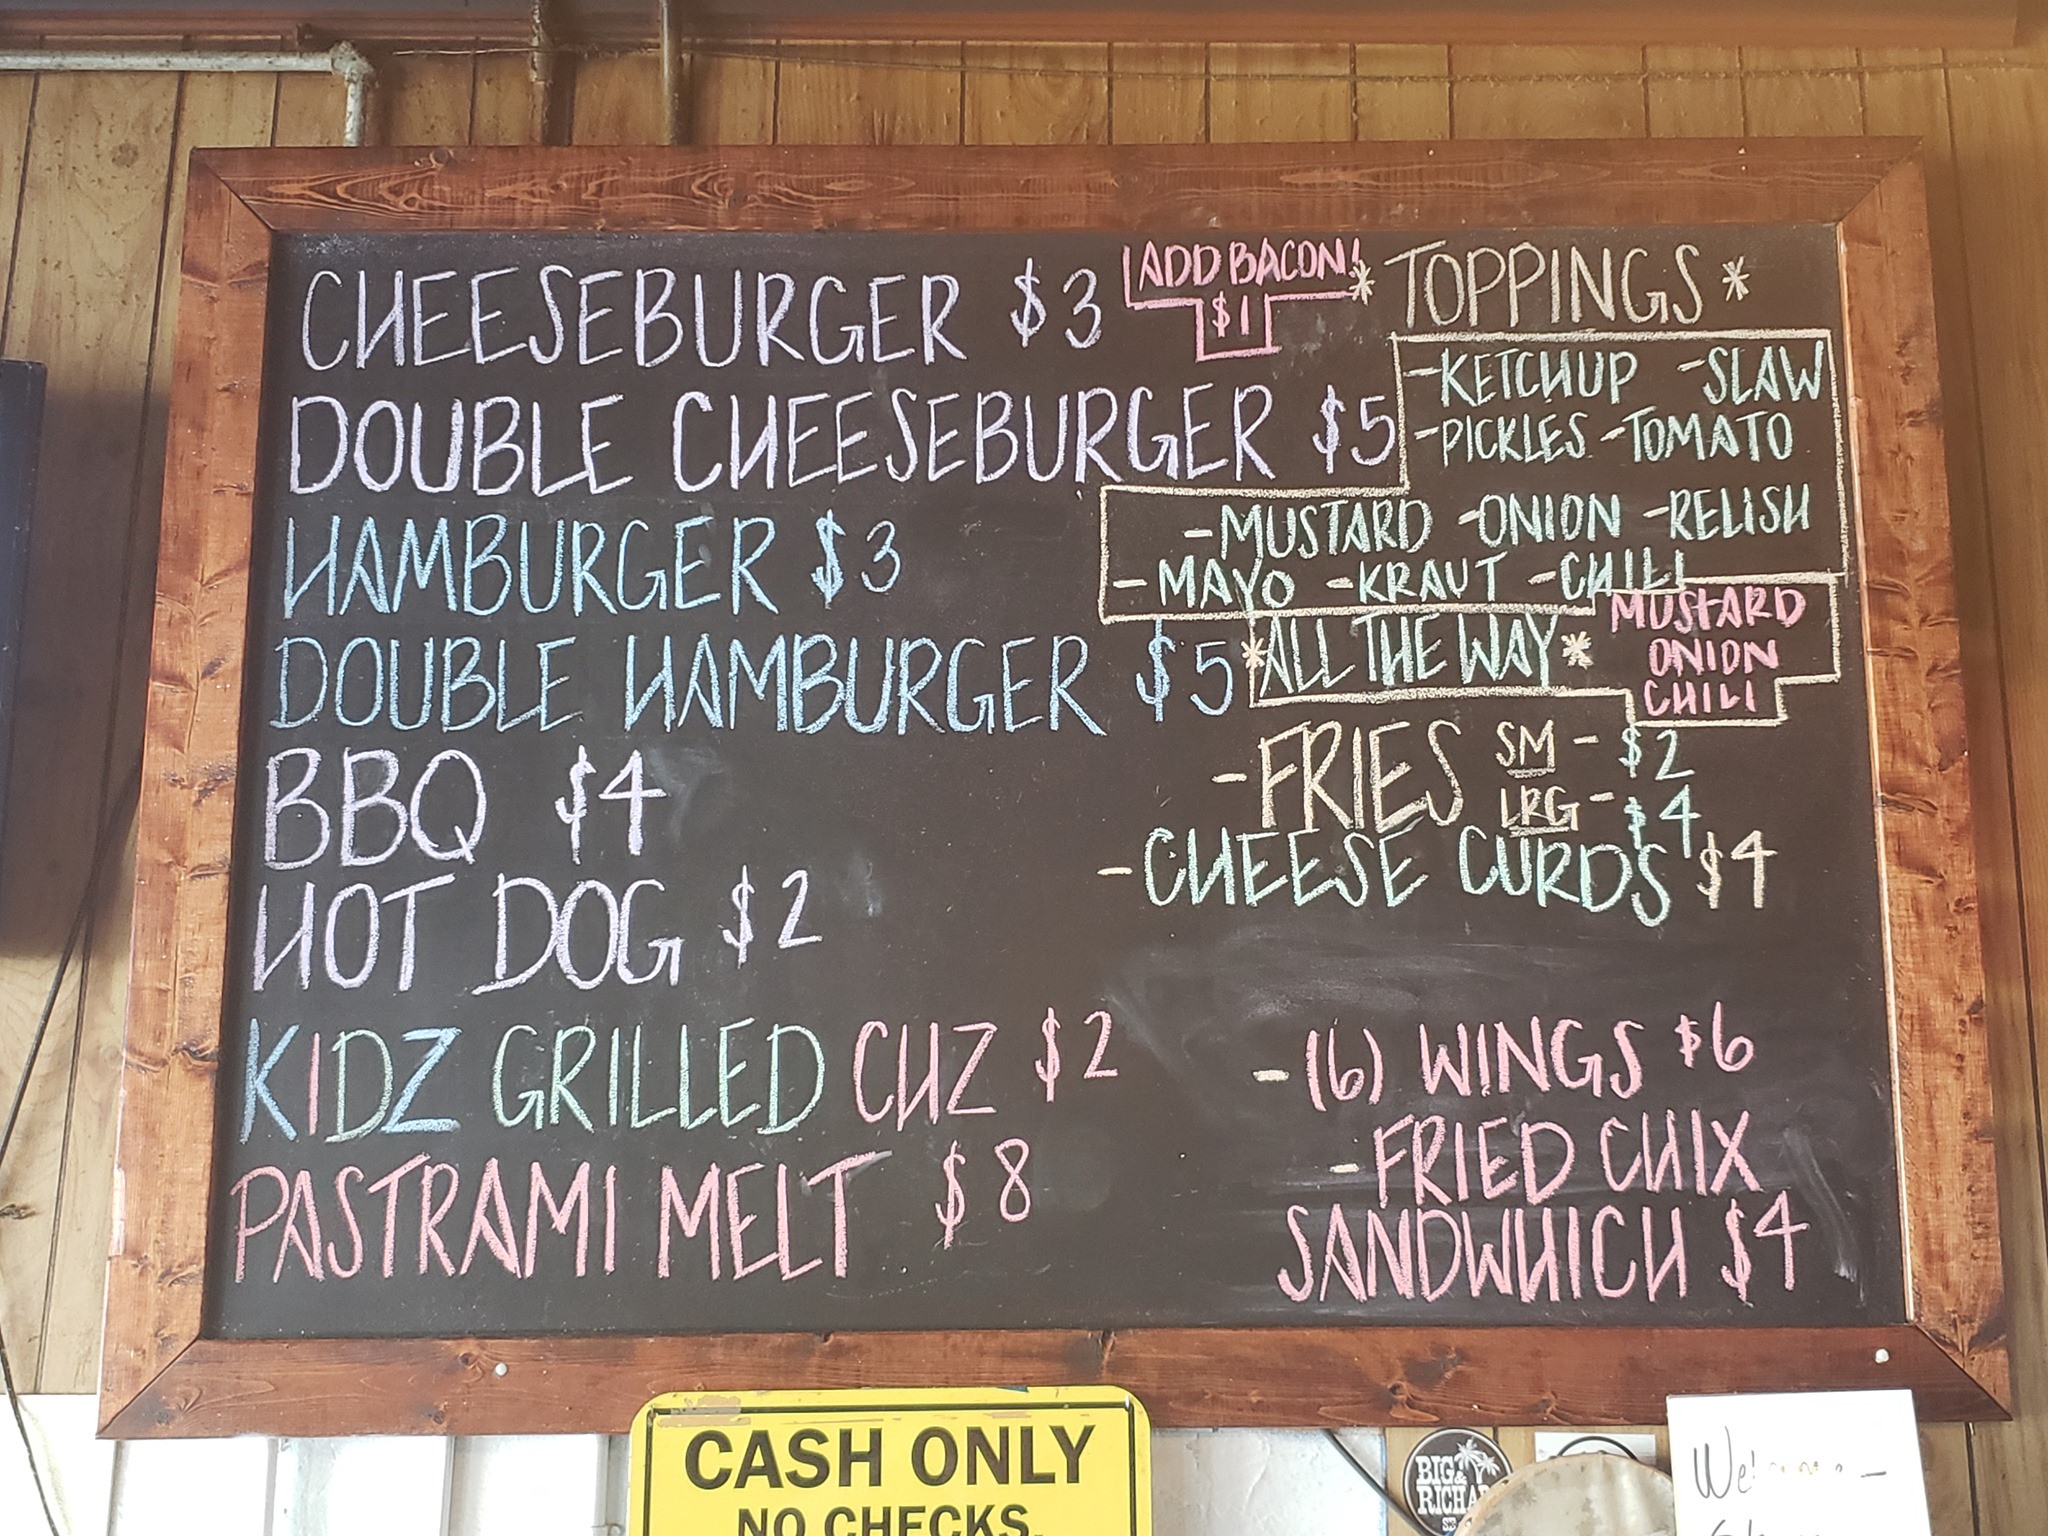 CHEESEBURGER $3
ADD BACON!
$1
DOUBLE CHEESEBURGER $5
HAMBURGER $3
DOUBLE HAMBURGER $5
BBQ $4
HOT DOG $2
KIDZ GRILLED CHZ $2
PASTRAMI MELT $8
* TOPPINGS *
-KETCHUP -SLAW
-PICKLES -TOMATO
-MUSTARD -ONION -RELISH
-MAYO -KRAUT -CHILI
*ALL THE WAY*
MUSTARD
ONION
CHILI
-FRIES SM - $2
LRG - $4
-CHEESE CURDS $4
-(6) WINGS $6
-FRIED CHIX
SANDWHICH $4
CASH ONLY
NO CHECKS.
BIG &
Welcome -